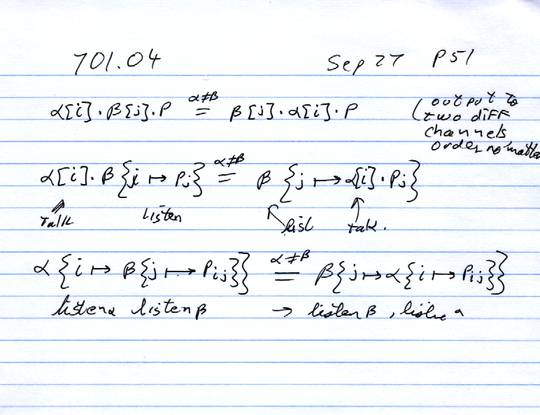 701.04 Sep 27 P51
α[i]·β[j]·P =^{α≠β} β[j]·α[i]·P (output to
two diff
channels
order no matter
α[i]·β{j ↦ Pj} =^{α≠β} β{j ↦ α[i]·Pj}
talk listen list talk.
α{i ↦ β{j ↦ Pij}} =^{α≠β} β{j ↦ α{i ↦ Pij}}
listen α listen β → listen β, listen α